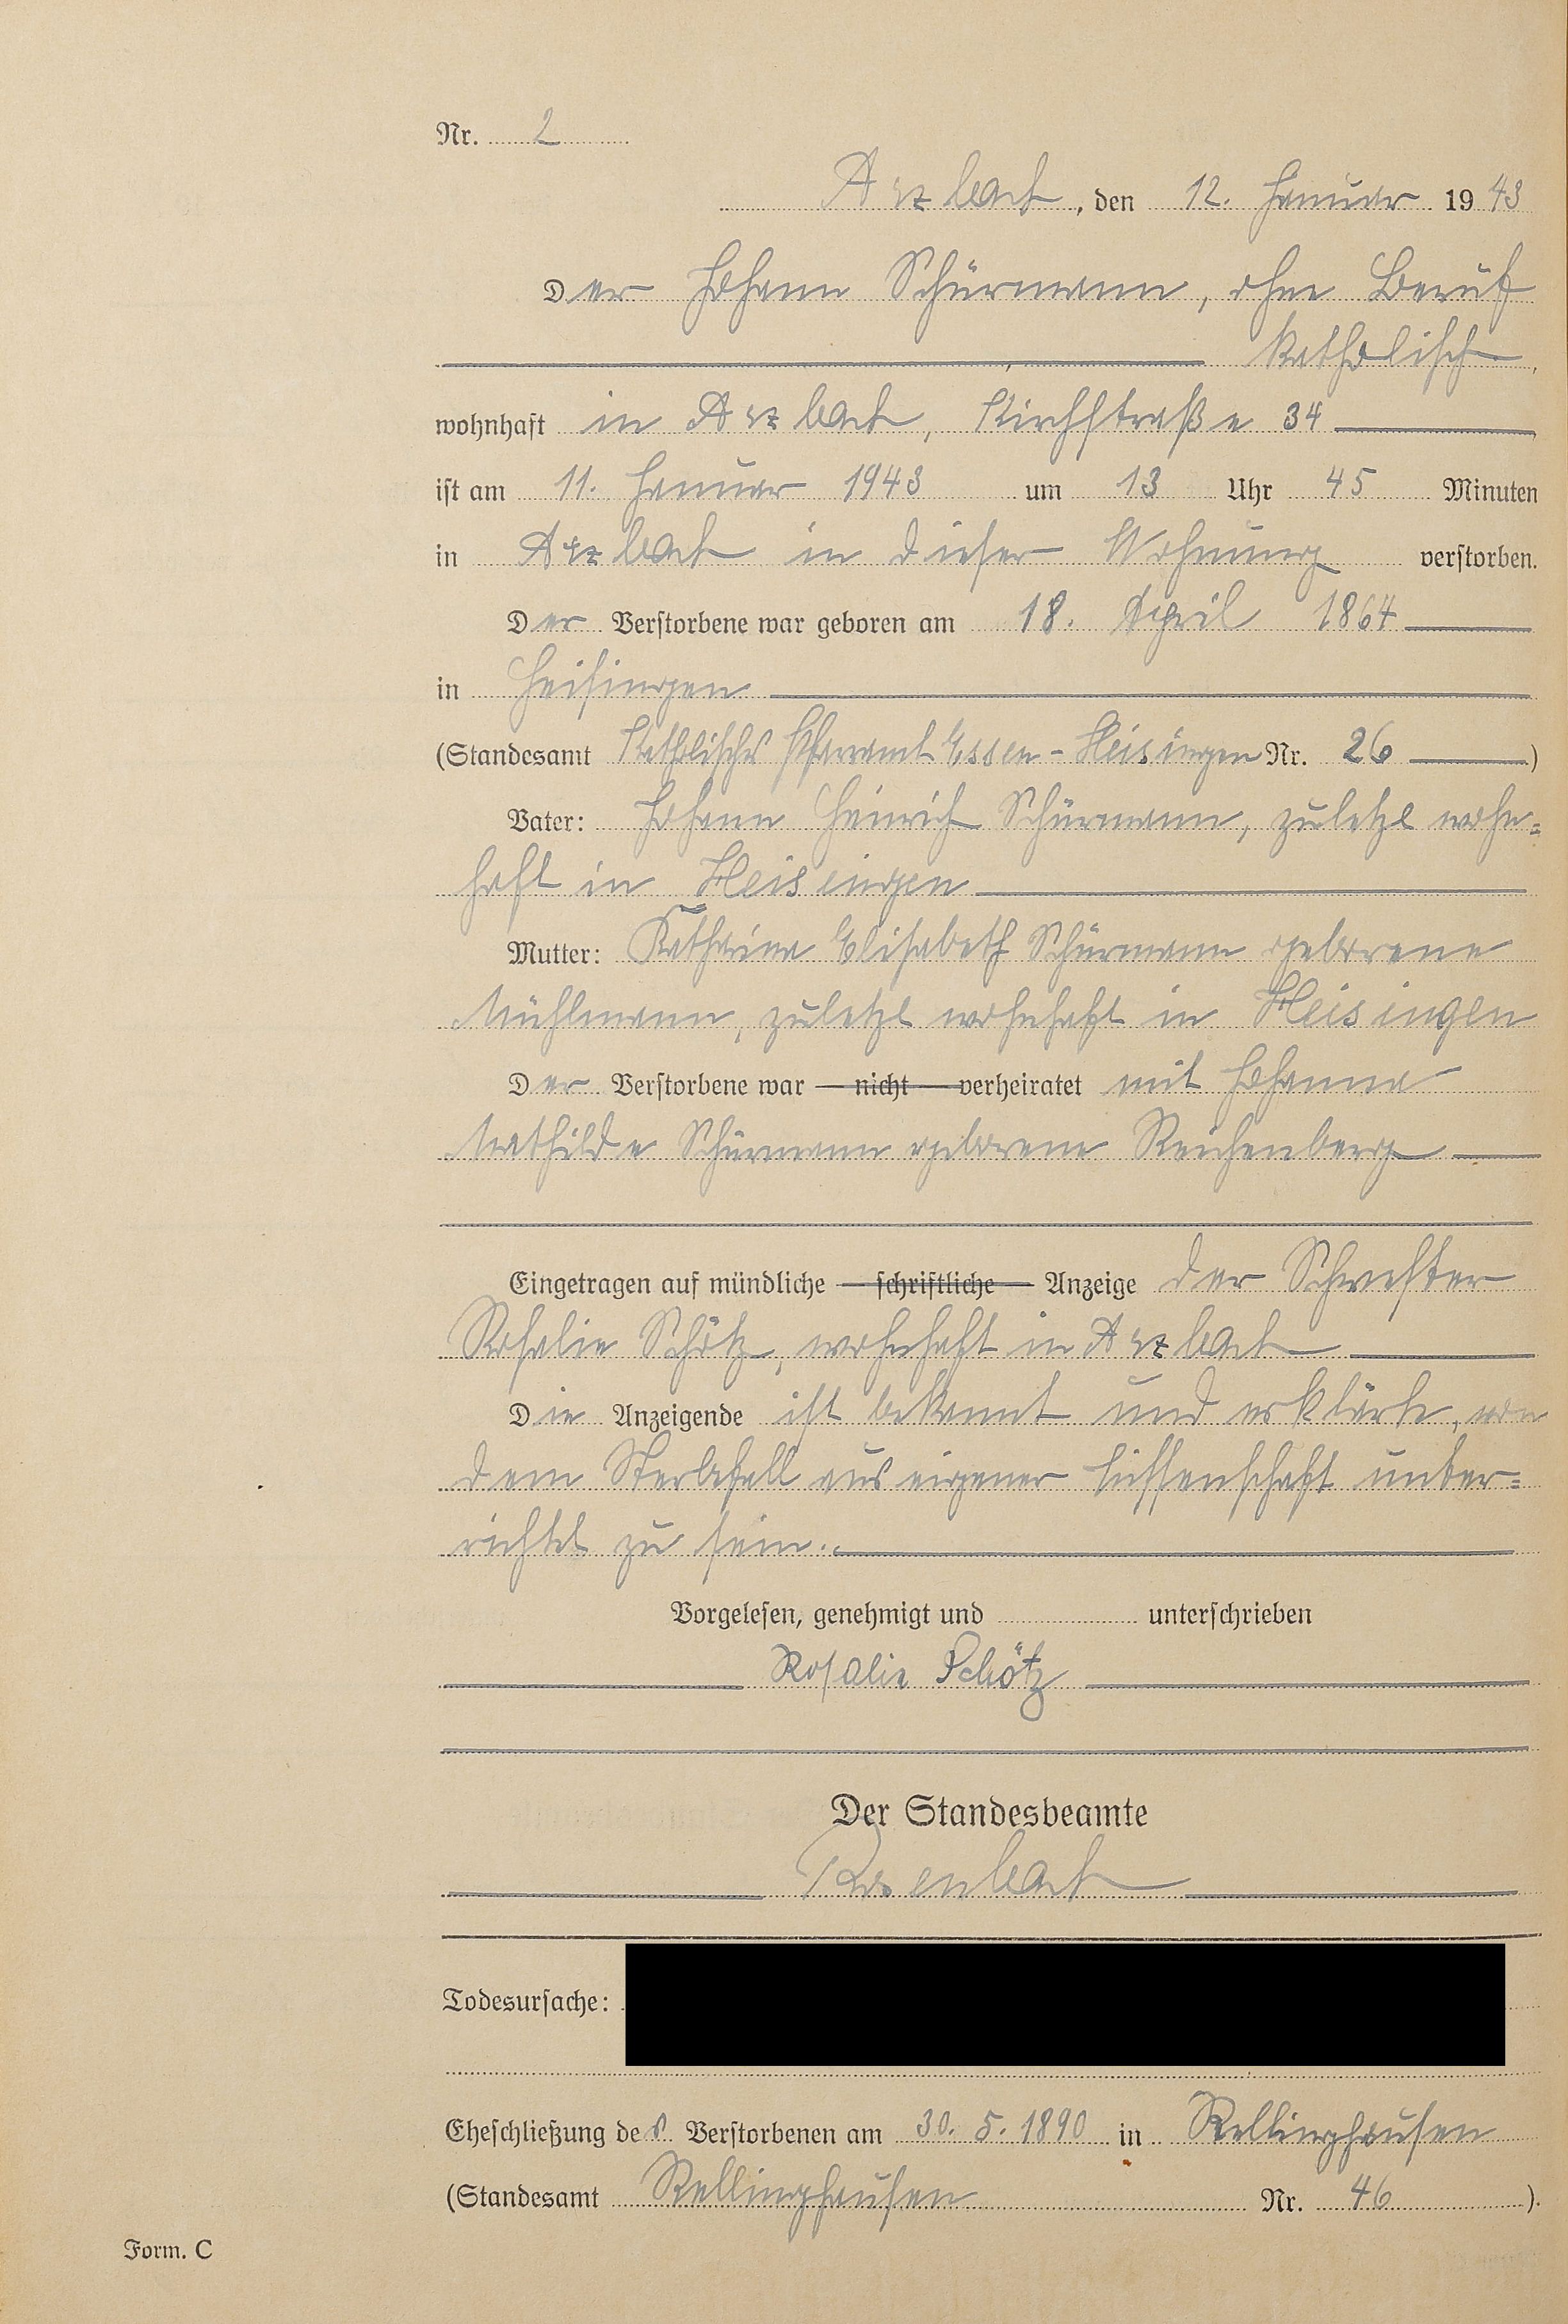 Nr. 2
Arzbach, den 12. Januar 1943
Der Johann Schürmann, ohne Beruf
katholisch,
wohnhaft in Arzbach, Kirchstraße 34
ist am 11. Januar 1943 um 13 Uhr 45 Minuten
in Arzbach in dieser Wohnung verstorben.
Der Verstorbene war geboren am 18. April 1864
in Heisingen
(Standesamt Katholisches Pfarramt Essen-Heisingen Nr. 26)
Vater: Johann Heinrich Schürmann, zuletzt wohn=
haft in Heisingen
Mutter: Katharina Elisabeth Schürmann geborene
Mühlmann, zuletzt wohnhaft in Heisingen
Der Verstorbene war nicht verheiratet mit Johanna
Mathilde Schürmann geborene Reichenberg
Eingetragen auf mündliche schriftliche Anzeige der Schwester
Rosalie Schötz, wohnhaft in Arzbach
Die Anzeigende ist bekannt und erklärte, von
dem Sterbefall aus eigener Wissenschaft unter=
richtet zu sein.
Vorgelesen, genehmigt und unterschrieben
Rosalie Schötz
Der Standesbeamte
Rosenbach
Todesursache:
Eheschließung des Verstorbenen am 30. 5. 1890 in Rellinghausen
(Standesamt Rellinghausen Nr. 46).
Form. C